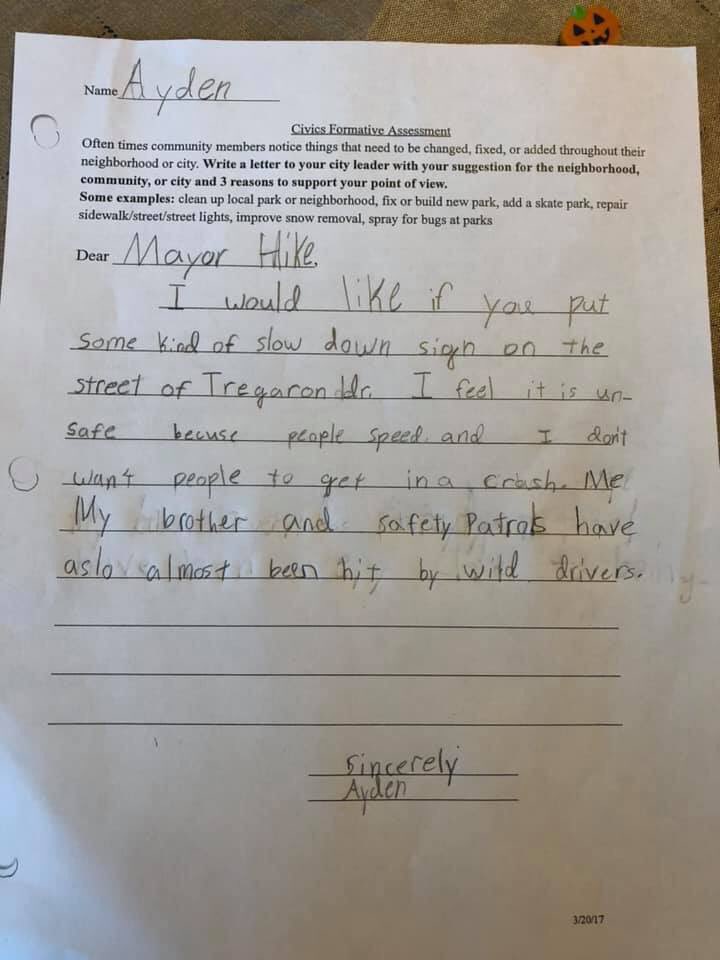 Name Ayden
Civics Formative Assessment
Often times community members notice things that need to be changed, fixed, or added throughout their
neighborhood or city. Write a letter to your city leader with your suggestion for the neighborhood,
community, or city and 3 reasons to support your point of view.
Some examples: clean up local park or neighborhood, fix or build new park, add a skate park, repair
sidewalk/street/street lights, improve snow removal, spray for bugs at parks
Dear Mayor Hike,
I would like if you put
some kind of slow down sign on the
street of Tregaron dr. I feel it is un-
safe becuse people speed and I don't
want people to get in a crash. Me
My brother and safety Patrols have
aslo almost been hit by wild drivers.
Sincerely
Ayden
3/20/17